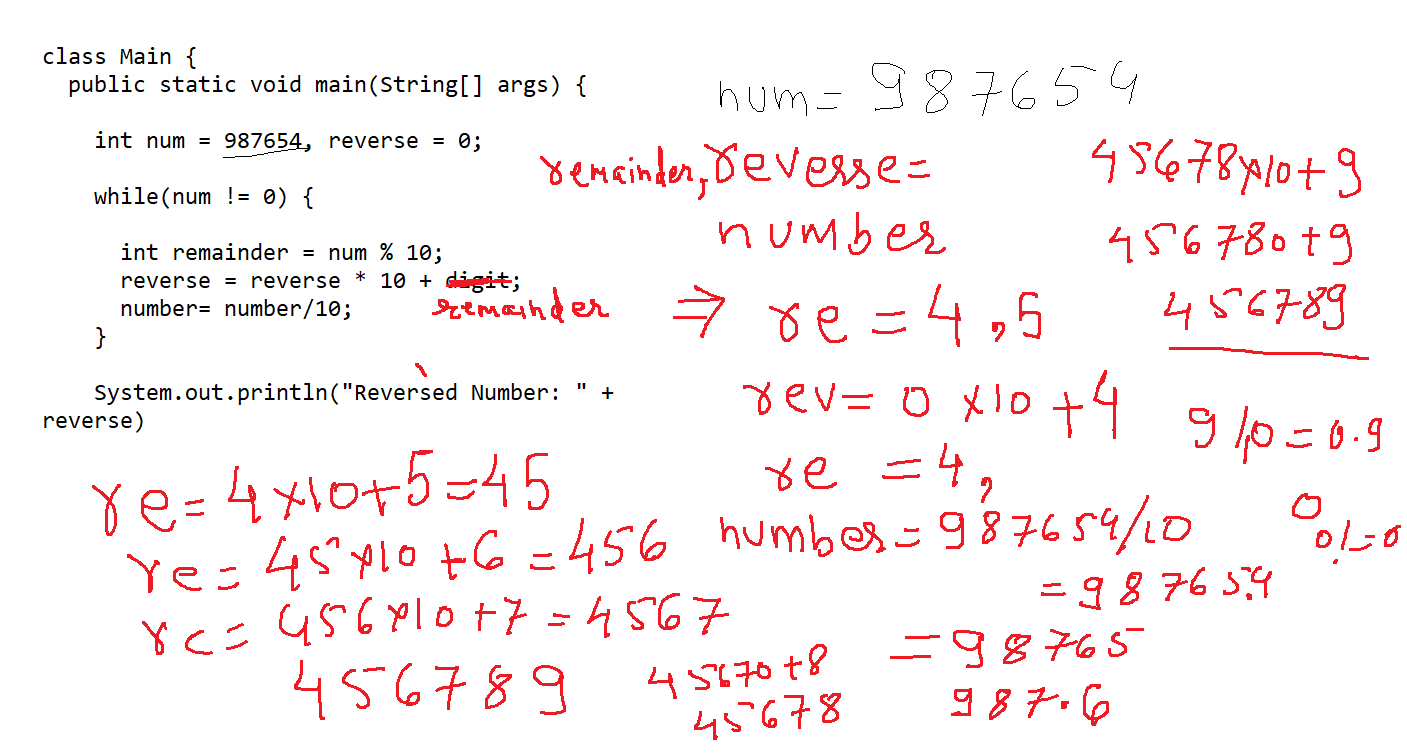 class Main {
public static void main(String[] args) {
int num = 987654, reverse = 0;
while(num != 0) {
int remainder = num % 10;
reverse = reverse * 10 + digit;
remainder
number= number/10;
}
System.out.println("Reversed Number: " +
reverse)
num= 987654
remainder, reverse=
number
⇒ re = 4,5
rev= 0 x10 +4
re = 4,
number=987654/10
= 98765.4
= 98765
987.6
45678x10+9
456780+9
456789
9/10=0.9
0
0!=0
re= 4x10+5=45
re= 45x10+6=456
re= 456x10+7=4567
456789
45670+8
45678